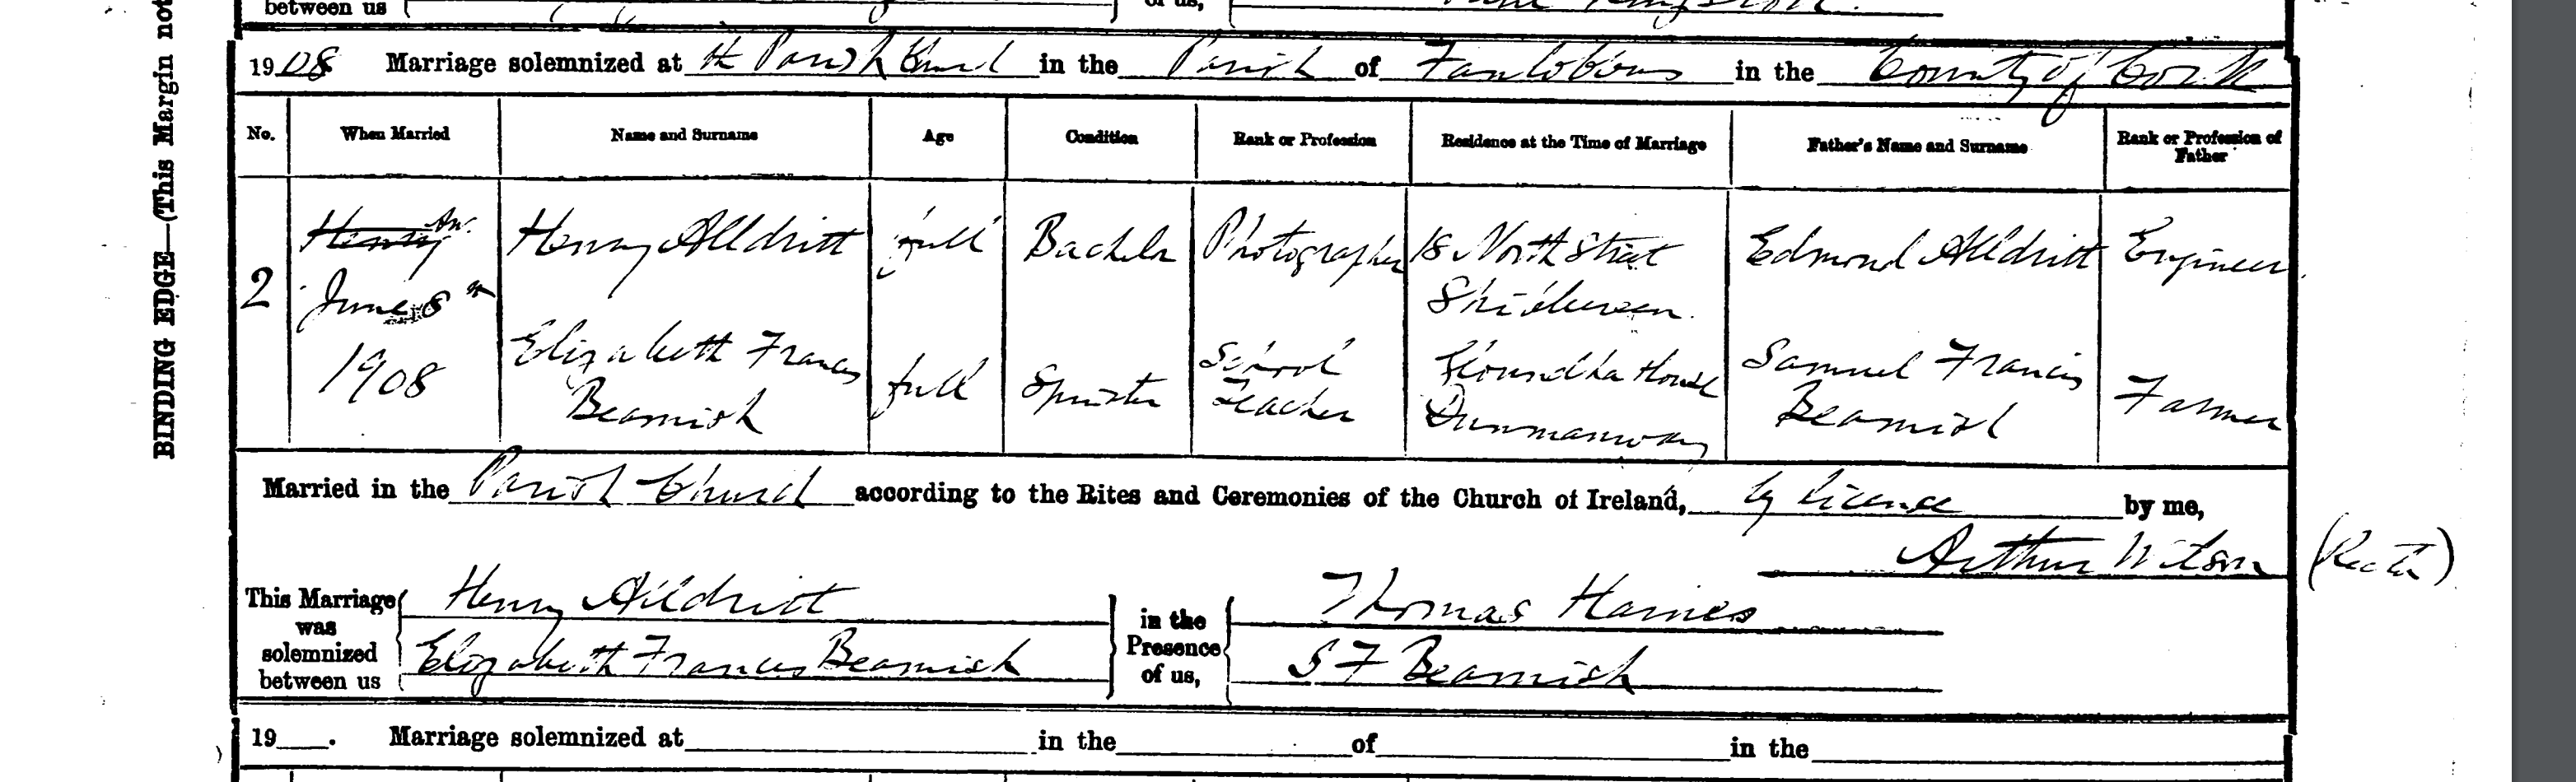 between us of us,
1908 Marriage solemnized at the Parish Church in the Parish of Fanlobbus in the County of Cork
No. When Married Name and Surname Age Condition Rank or Profession Residence at the Time of Marriage Father's Name and Surname Rank or Profession of Father
2 Henry AW. June 8th 1908
Henry Alldritt full Bachelor Photographer 18 North Street Skibbereen Edmond Alldritt Engineer
Elizabeth Francis Beamish full Spinster School Teacher House Dunmanway Samuel Francis Beamish Farmer
Married in the Parish Church according to the Rites and Ceremonies of the Church of Ireland, by licence by me,
Arthur Wilson (Rector)
This Marriage was solemnized between us Henry Alldritt Elizabeth Francis Beamish in the Presence of us, Thomas Haines S F Beamish
19 . Marriage solemnized at in the of in the
BINDING EDGE—(This Margin not